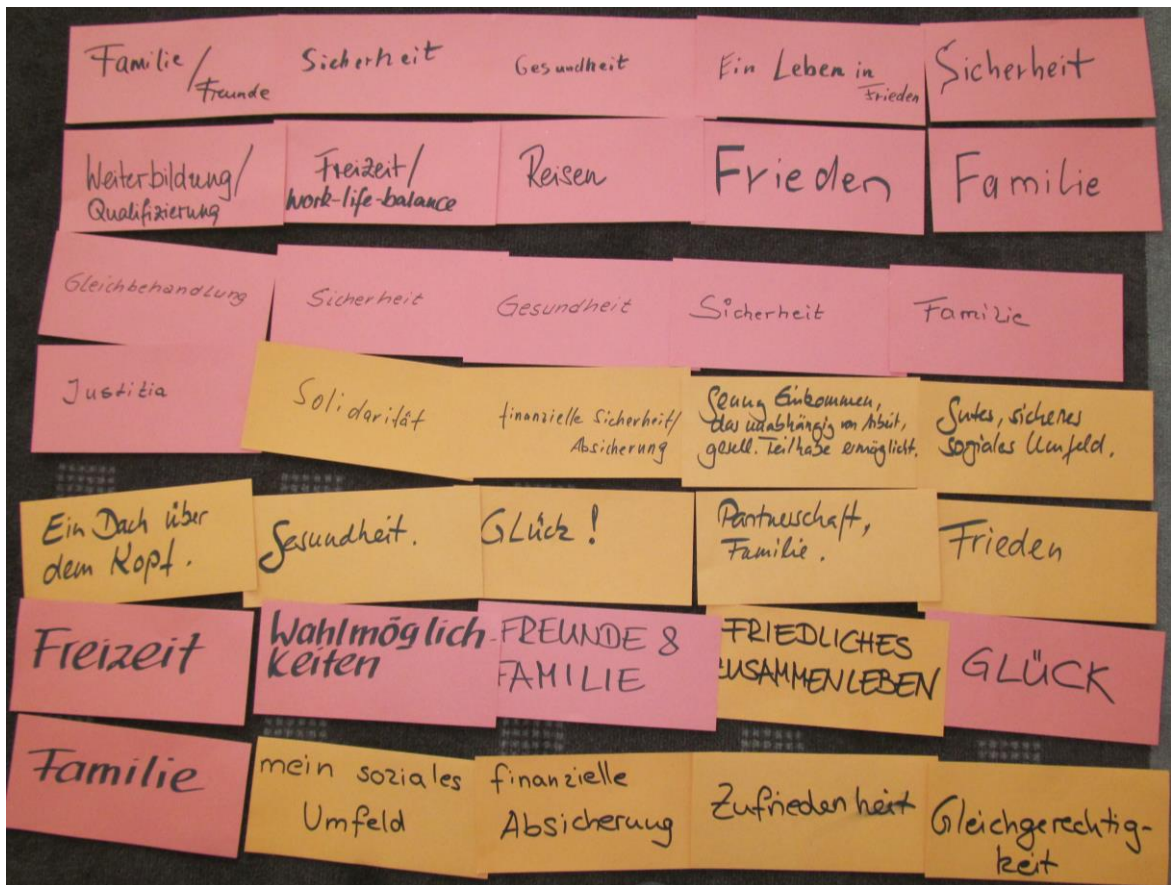 Familie /
Freunde
Sicherheit
Gesundheit
Ein Leben in
Frieden
Sicherheit
Weiterbildung/
Qualifizierung
Freizeit/
work-life-balance
Reisen
Frieden
Familie
Gleichbehandlung
Sicherheit
Gesundheit
Sicherheit
Familie
Justitia
Solidarität
finanzielle Sicherheit/
Absicherung
Genug Einkommen,
das unabhängig von Arbeit,
gesell. Teilhabe ermöglicht.
Gutes, sicheres
soziales Umfeld.
Ein Dach über
dem Kopf.
Gesundheit.
Glück!
Partnerschaft,
Familie.
Frieden
Freizeit
Wahlmöglich-
keiten
FREUNDE &
FAMILIE
FRIEDLICHES
ZUSAMMENLEBEN
GLÜCK
Familie
mein soziales
Umfeld
finanzielle
Absicherung
Zufriedenheit
Gleichgerechtig-
keit